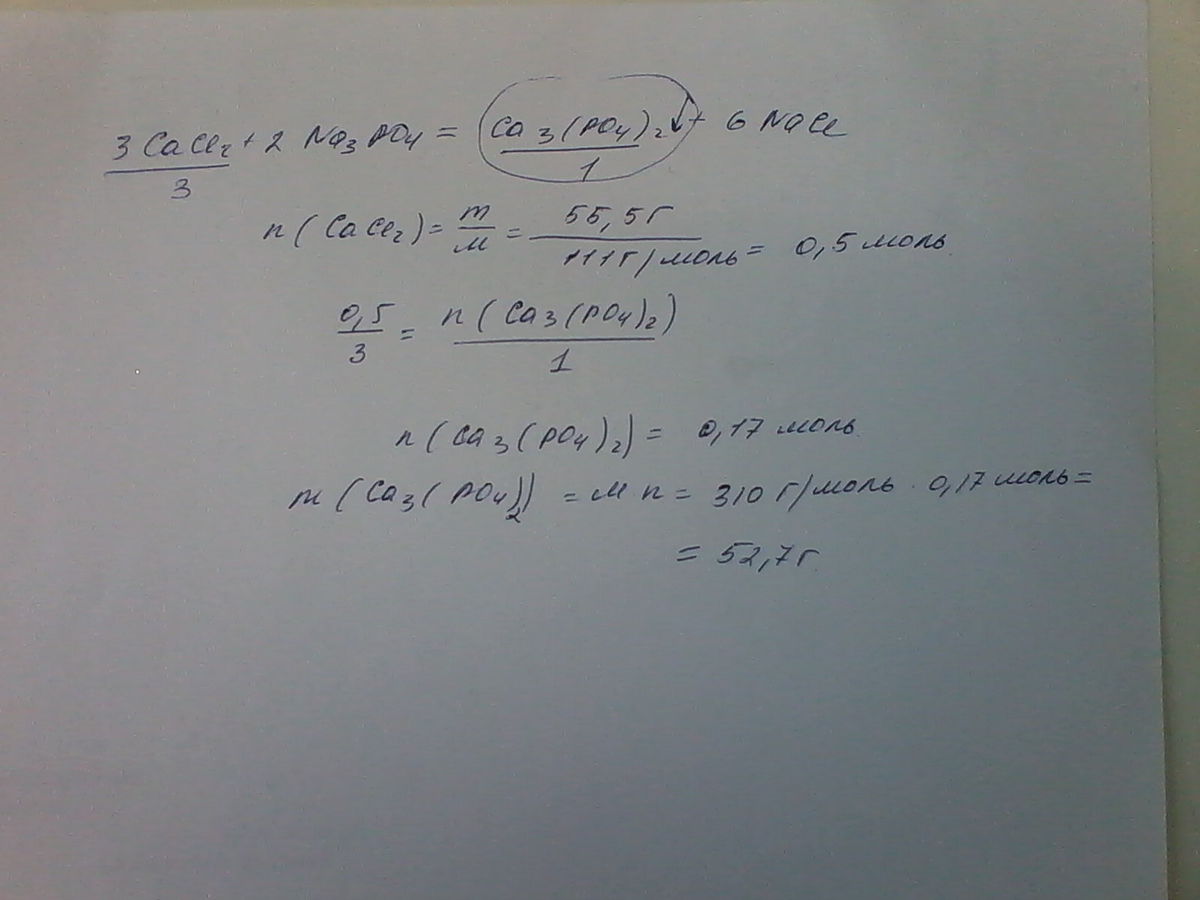 3 CaCl₂ + 2 Na₃PO₄ = Ca₃(PO₄)₂↓ + 6 NaCl
3 1
n (CaCl₂) = m/M = 55,5г / 111г/моль = 0,5 моль
0,5/3 = n (Ca₃(PO₄)₂)/1
n (Ca₃(PO₄)₂) = 0,17 моль
m (Ca₃(PO₄)₂) = M n = 310 г/моль · 0,17 моль =
= 52,7г.